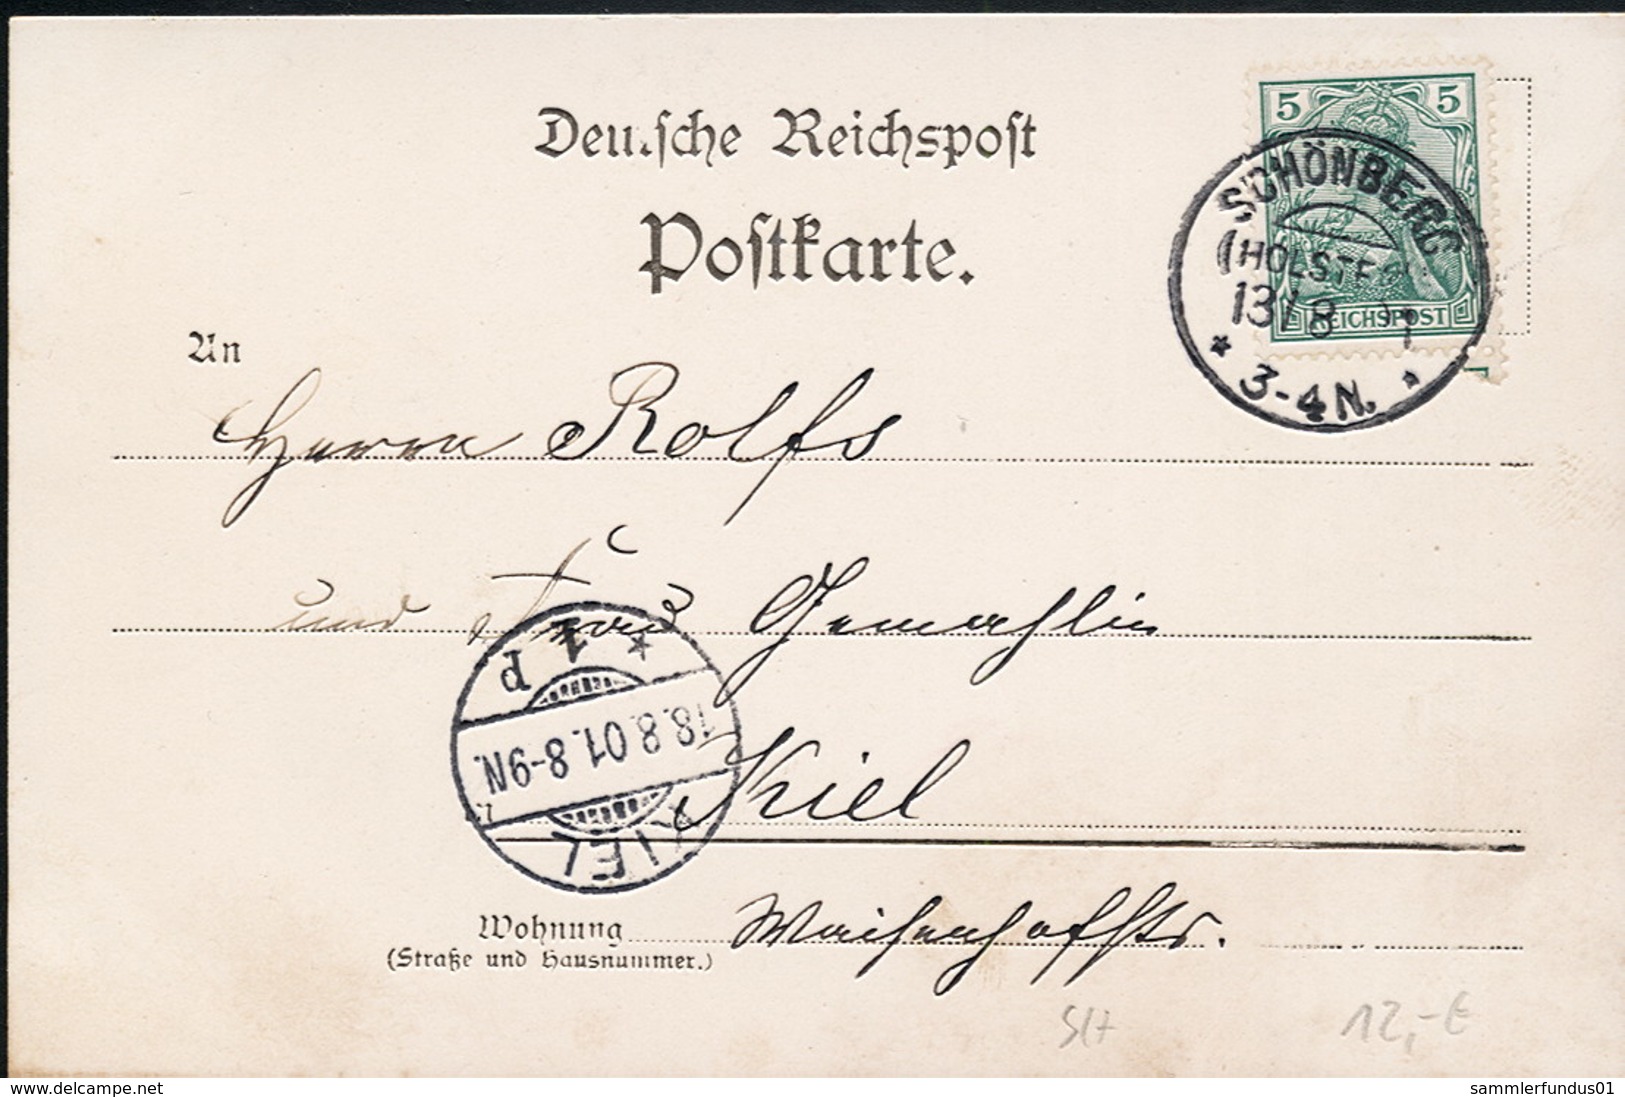 Deutsche Reichspost
Postkarte.
5 5
REICHSPOST
SCHÖNBERG
(HOLSTEIN)
13/8 01
* 3-4N. *
An
Herrn Rolfs
und Frau Gemahlin
Kiel
KIEL
18.8.01. 8-9N.
* 1 P
Wohnung
(Straße und Hausnummer.)
Waisenhofstr.
SH
12,-€
www.delcampe.net
sammlerfundus01